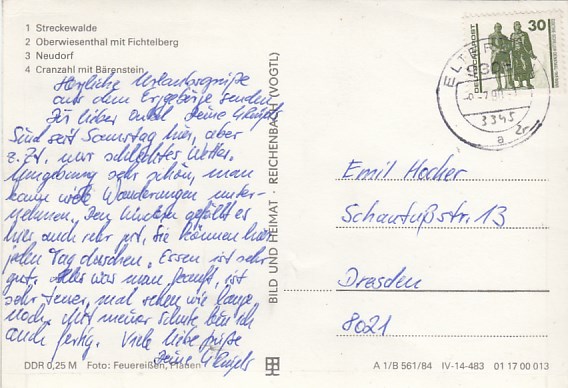 1 Streckewalde
2 Oberwiesenthal mit Fichtelberg
3 Neudorf
4 Cranzahl mit Bärenstein
Herzliche Urlaubsgrüße
aus dem Erzgebirge senden
Dir lieber Onkel Deine
Sind seit Samstag hier, aber
z. Zt. nur schlechtes Wetter.
Umgebung sehr schön, man
kann viele Wanderungen unter-
nehmen. Den Kindern gefällt es
hier auch sehr gut, sie können hier
jeden Tag duschen. Essen ist sehr
gut. Alles was man kauft, ist
sehr teuer, mal sehen wie lange
noch. Mit meiner Schule bin ich
auch fertig. Viele liebe Grüße
Deine
DDR 0,25 M Foto: Feuereißen, Plauen
BILD UND HEIMAT · REICHENBACH (VOGTL)
DEUTSCHE POST
30
3345
a
Emil Hocher
Schaufußstr. 13
Dresden
8021
A 1/B 561/84 IV-14-483 01 17 00 013